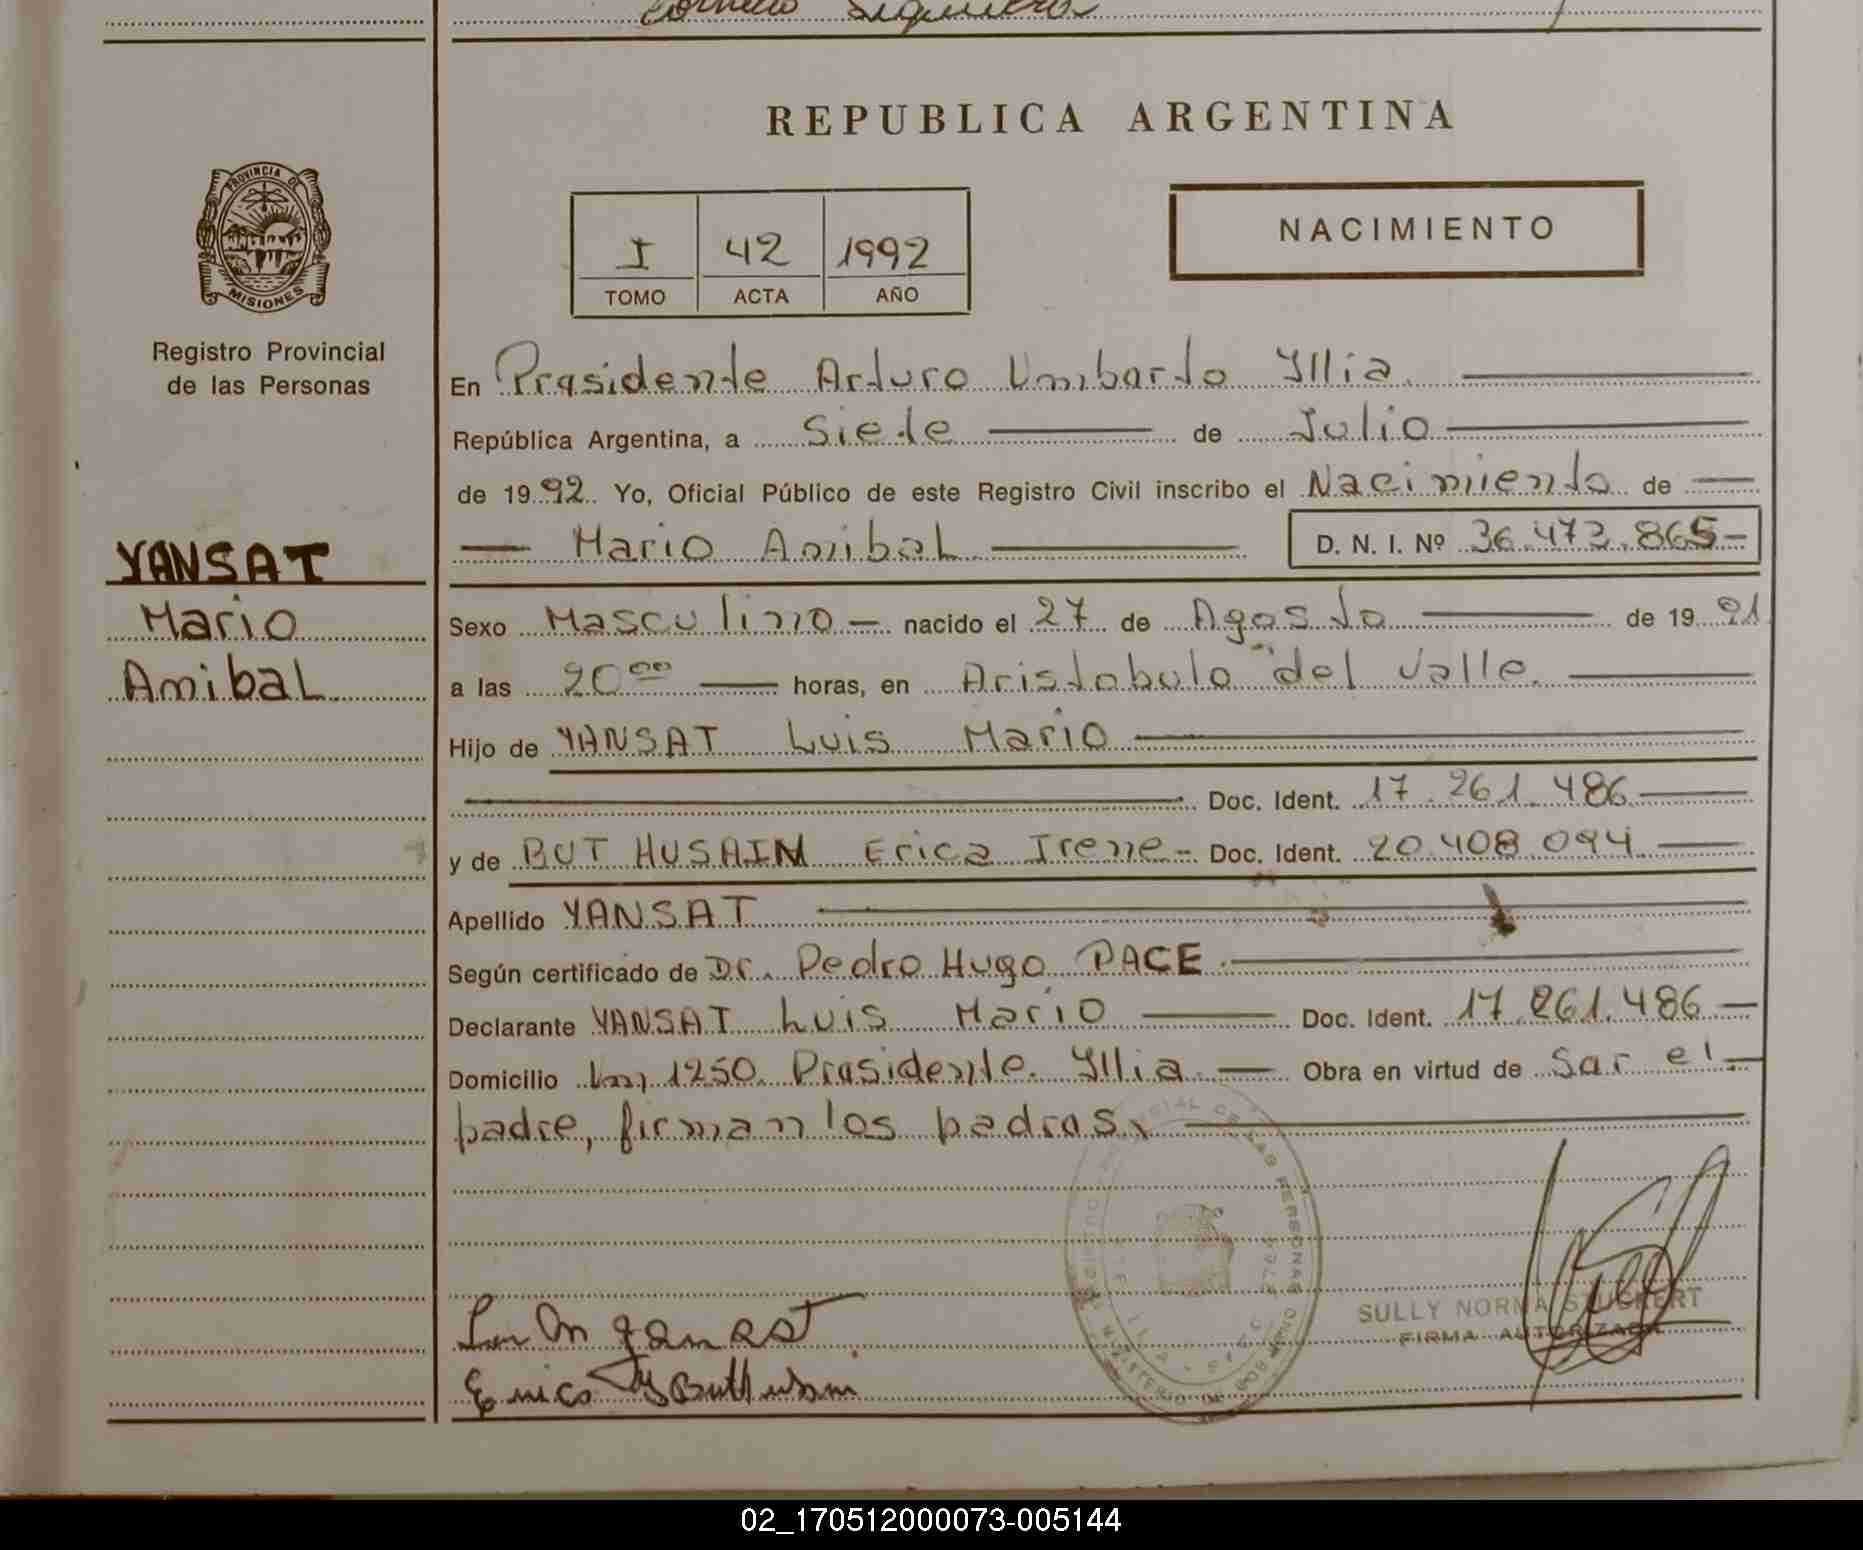 Cornelio
REPUBLICA ARGENTINA
PROVINCIA DE
MISIONES
I 42 1992
TOMO ACTA AÑO
NACIMIENTO
Registro Provincial
de las Personas
En Presidente Arturo Umberto Yllia
República Argentina, a Siete de Julio
de 1992. Yo, Oficial Público de este Registro Civil inscribo el Nacimiento de
Mario Anibal D. N. I. Nº 36.473.865-
YANSAT
Mario
Anibal
Sexo Masculino - nacido el 27 de Agosto de 1991
a las 20 00 horas, en Aristobulo del Valle.
Hijo de YANSAT Luis Mario
Doc. Ident. 17.261.486
y de BUT HUSAIM Erica Irene - Doc. Ident. 20.408.094
Apellido YANSAT
Según certificado de Dr. Pedro Hugo PACE.
Declarante YANSAT Luis Mario Doc. Ident. 17.261.486
Domicilio km 1250 Presidente Yllia Obra en virtud de Ser el
padre, firman los padres.
SULLY NORMA STUCKERT
FIRMA AUTORIZADA
02_170512000073-005144